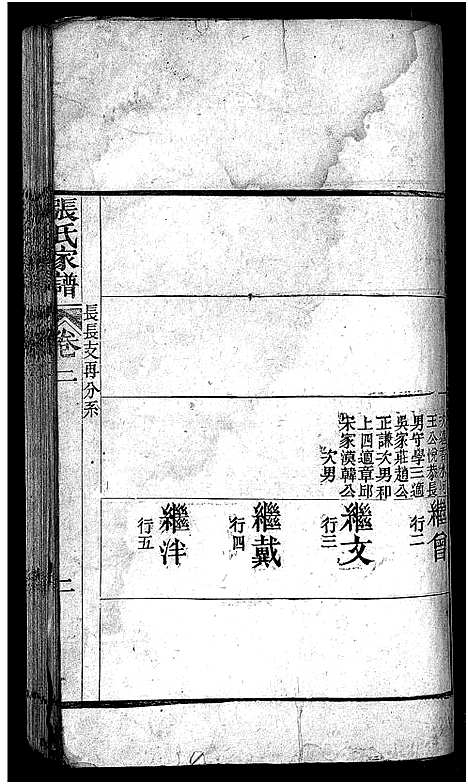 王公悅恭長
男守學三適
吳家莊趙公
正謙次男和
上四適章邱
宋家漠韓公
次男
繼曾
行二
繼文
行三
繼戴
行四
繼泮
行五
長長支再分系
張氏家譜
卷二
二